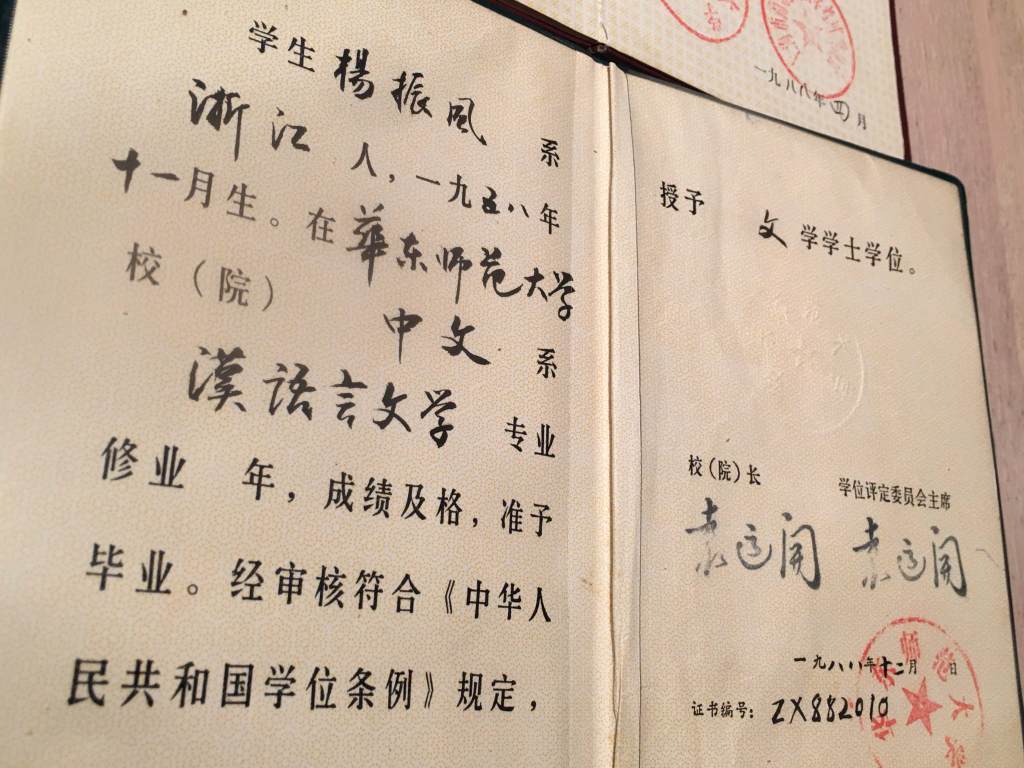 学生楊振风系
浙江人，一九五八年
十一月生。在華东师范大学
校（院）中文系
漢語言文学专业
修业 年，成绩及格，准予
毕业。经审核符合《中华人
民共和国学位条例》规定，
授予 文学学士学位。
校（院）长 学位评定委员会主席
袁运开 袁运开
一九八八年十二月 日
证书编号：ZX882010
师范大学
一九八八年四月